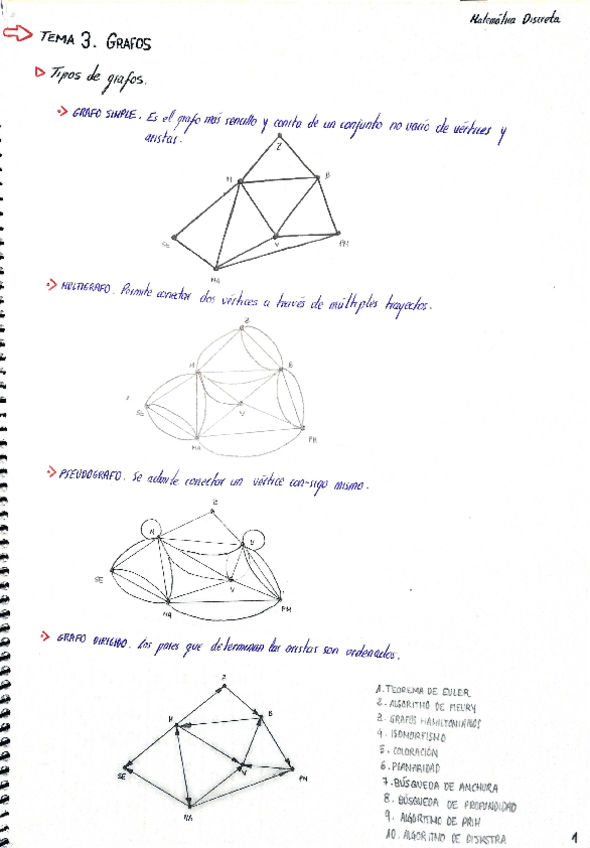 Matemática Discreta
TEMA 3. GRAFOS
Tipos de grafos.
GRAFO SIMPLE. Es el grafo más sencillo y consta de un conjunto no vacío de vértices y
aristas.
Z
M
B
SE
V
PM
MA
MULTIGRAFO. Permite conectar dos vértices a través de múltiples trayectos.
Z
M
B
SE
V
PM
MA
PSEUDOGRAFO. Se admite conectar un vértice con-sigo mismo.
Z
M
B
SE
V
MA
PM
GRAFO DIRIGIDO. Los pares que determinan las aristas son ordenados.
Z
M
B
SE
V
PM
MA
1. TEOREMA DE EULER
2. ALGORITMO DE FLEURY
3. GRAFOS HAMILTONIANOS
4. ISOMORFISMO
5. COLORACIÓN
6. PLANARIDAD
7. BÚSQUEDA DE ANCHURA
8. BÚSQUEDA DE PROFUNDIDAD
9. ALGORITMO DE PRIM
10. ALGORITMO DE DIJKSTRA
1